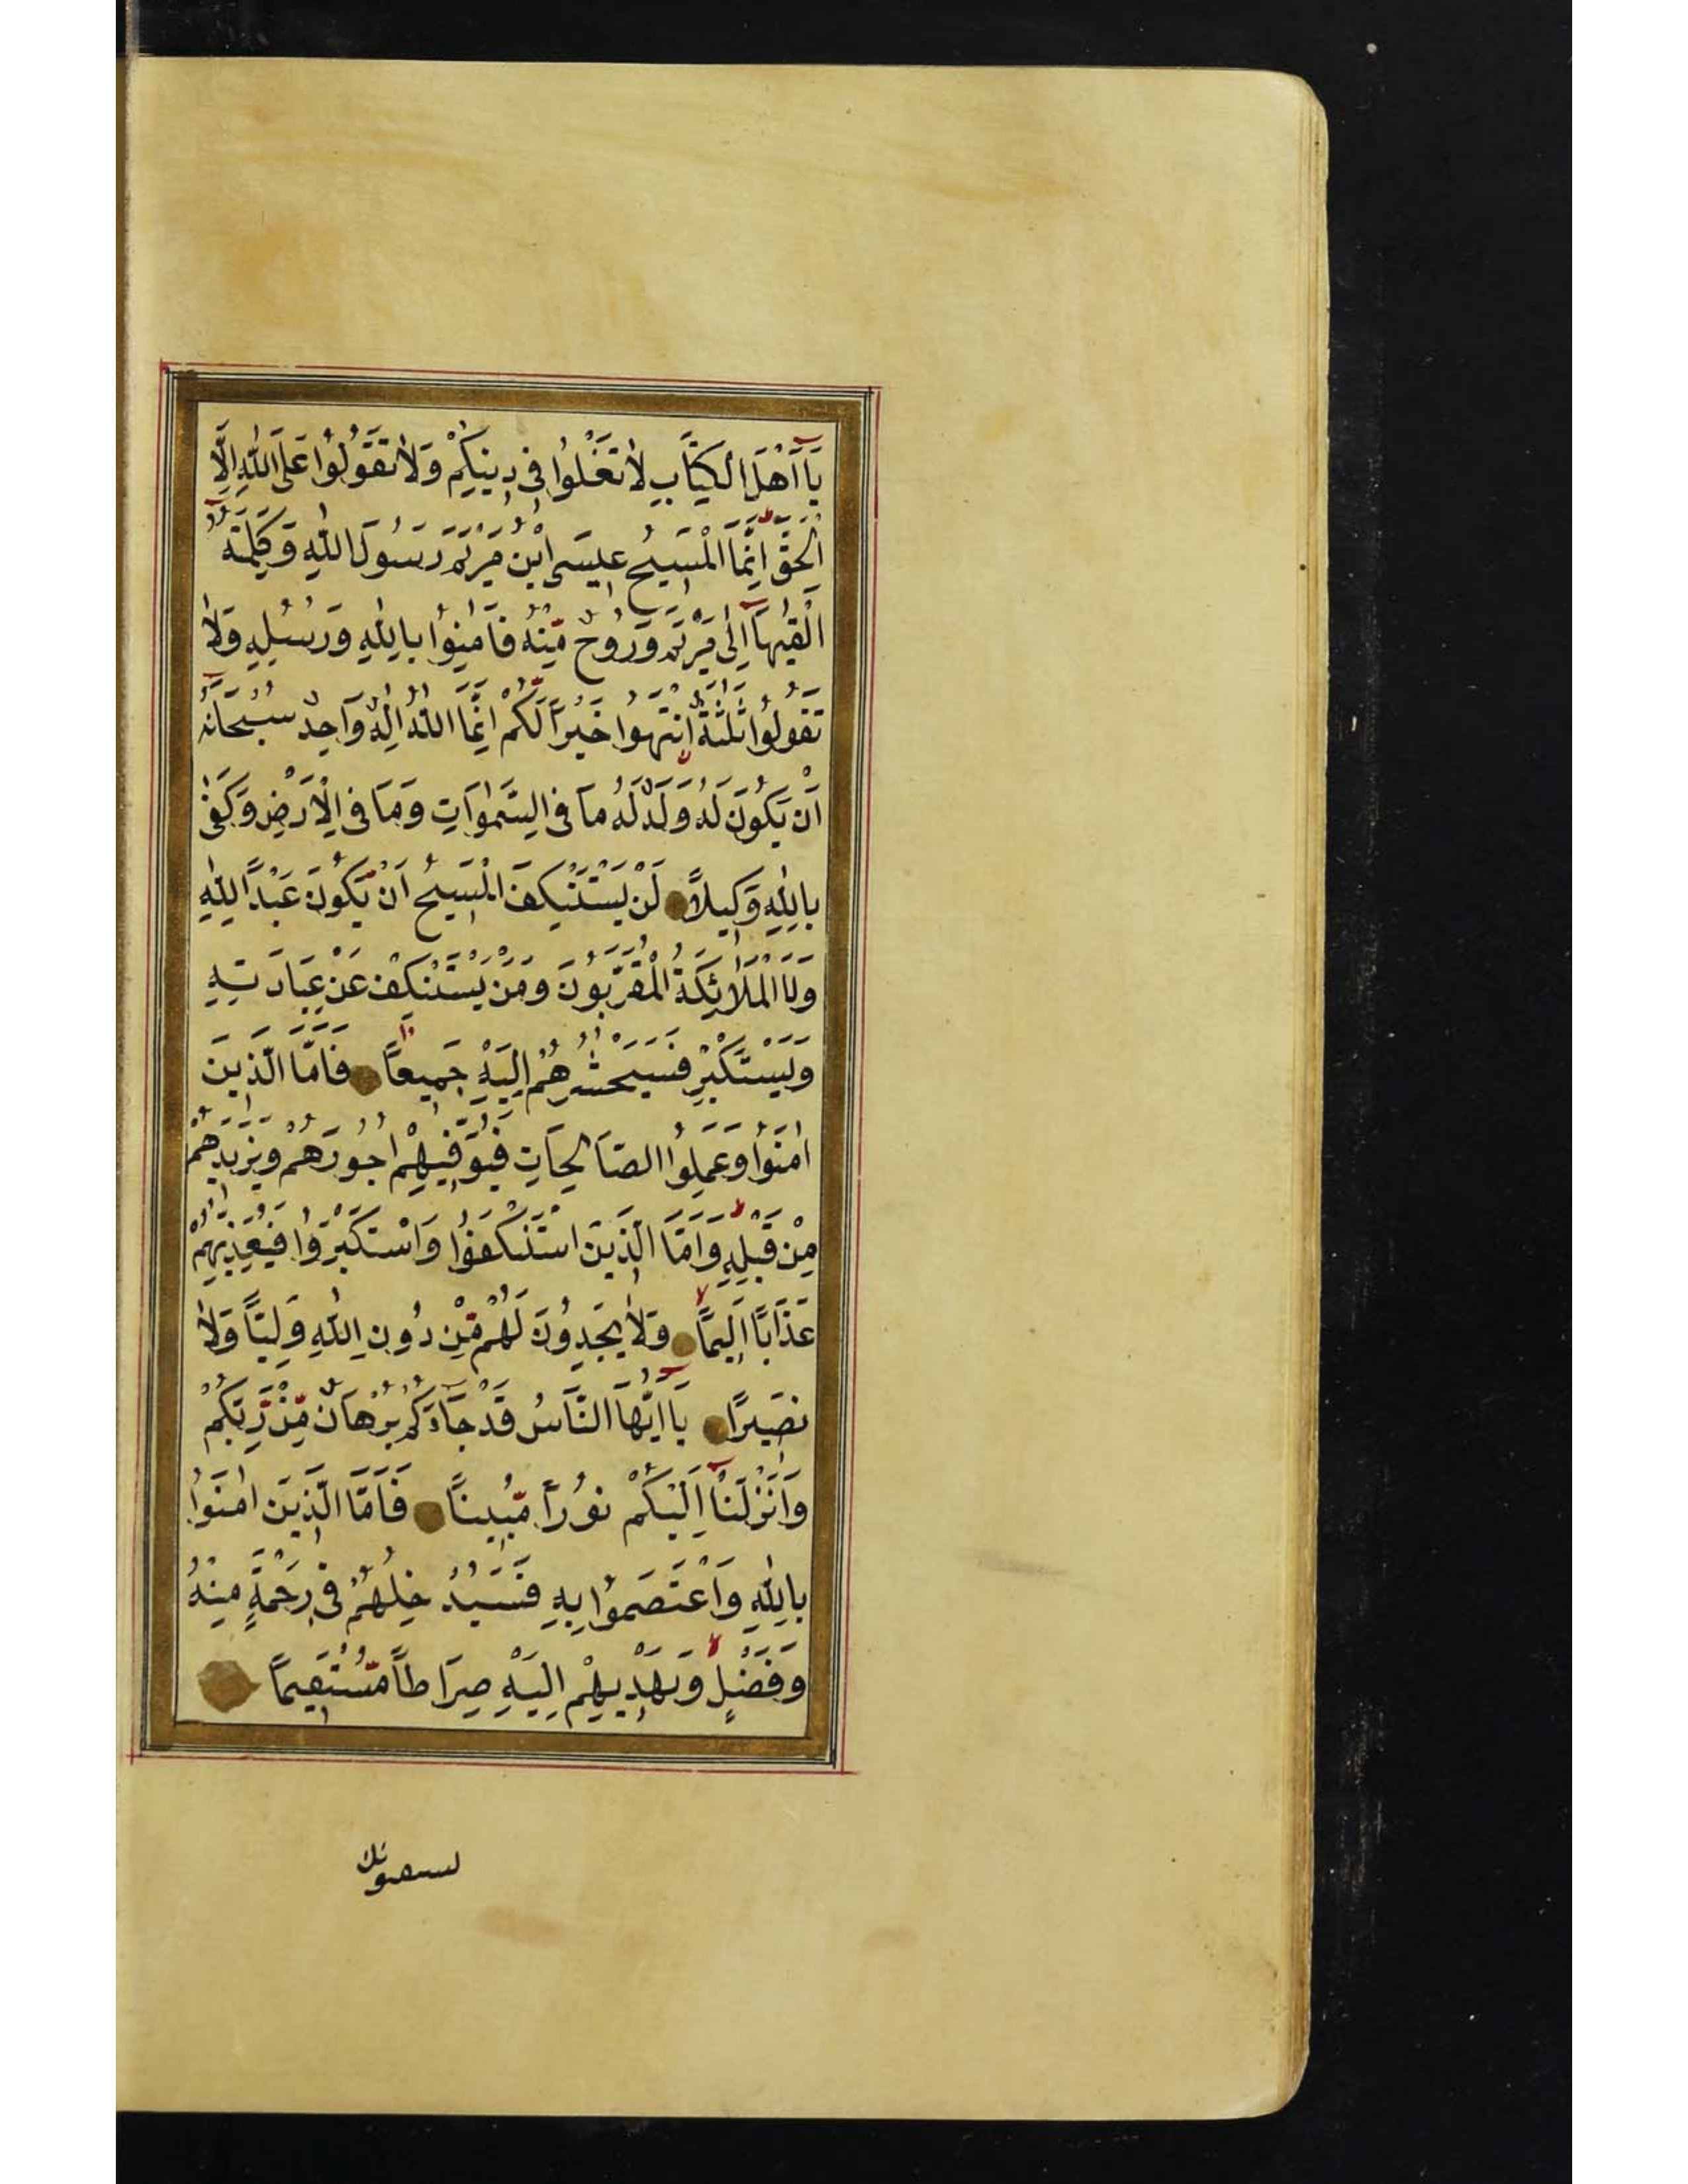 يَٓا اَهْلَ الْكِتَابِ لَا تَغْلُوا فِى دِينِكُمْ وَلَا تَقُولُوا عَلَى اللّٰهِ اِلَّا
الْحَقَّ اِنَّمَا الْمَسِيحُ عِيسَى ابْنُ مَرْيَمَ رَسُولُ اللّٰهِ وَكَلِمَتُهُ
اَلْقٰيهَٓا اِلٰى مَرْيَمَ وَرُوحٌ مِّنْهُ فَاٰمِنُوا بِاللّٰهِ وَرُسُلِهِ وَلَا
تَقُولُوا ثَلٰثَةٌ اِنْتَهُوا خَيْرًا لَّكُمْ اِنَّمَا اللّٰهُ اِلٰهٌ وَاحِدٌ سُبْحَانَهُ
اَنْ يَكُونَ لَهُ وَلَدٌ لَهُ مَا فِى السَّمٰوَاتِ وَمَا فِى الْاَرْضِ وَكَفٰى
بِاللّٰهِ وَكِيلًا لَنْ يَسْتَنْكِفَ الْمَسِيحُ اَنْ يَّكُونَ عَبْدًا لِلّٰهِ
وَلَا الْمَلَائِكَةُ الْمُقَرَّبُونَ وَمَنْ يَسْتَنْكِفْ عَنْ عِبَادَتِهِ
وَيَسْتَكْبِرْ فَسَيَحْشُرُهُمْ اِلَيْهِ جَمِيعًا فَاَمَّا الَّذِينَ
اٰمَنُوا وَعَمِلُوا الصَّالِحَاتِ فَيُوَفِّيهِمْ اُجُورَهُمْ وَيَزِيدُهُمْ
مِنْ فَضْلِهِ وَاَمَّا الَّذِينَ اسْتَنْكَفُوا وَاسْتَكْبَرُوا فَيُعَذِّبُهُمْ
عَذَابًا اَلِيمًا وَلَا يَجِدُونَ لَهُمْ مِّنْ دُونِ اللّٰهِ وَلِيًّا وَلَا
نَصِيرًا يَٓا اَيُّهَا النَّاسُ قَدْ جَٓاءَكُمْ بُرْهَانٌ مِّنْ رَّبِّكُمْ
وَاَنْزَلْنَٓا اِلَيْكُمْ نُورًا مُّبِينًا فَاَمَّا الَّذِينَ اٰمَنُوا
بِاللّٰهِ وَاعْتَصَمُوا بِهِ فَسَيُدْخِلُهُمْ فِى رَحْمَةٍ مِنْهُ
وَفَضْلٍ وَيَهْدِيهِمْ اِلَيْهِ صِرَاطًا مُّسْتَقِيمًا